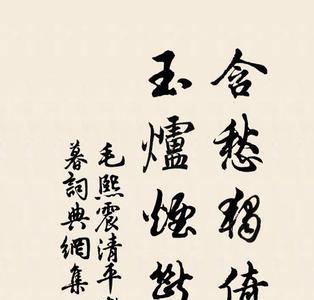 含愁獨倚
玉爐煙斷
毛熙震清平
暮詞典網集